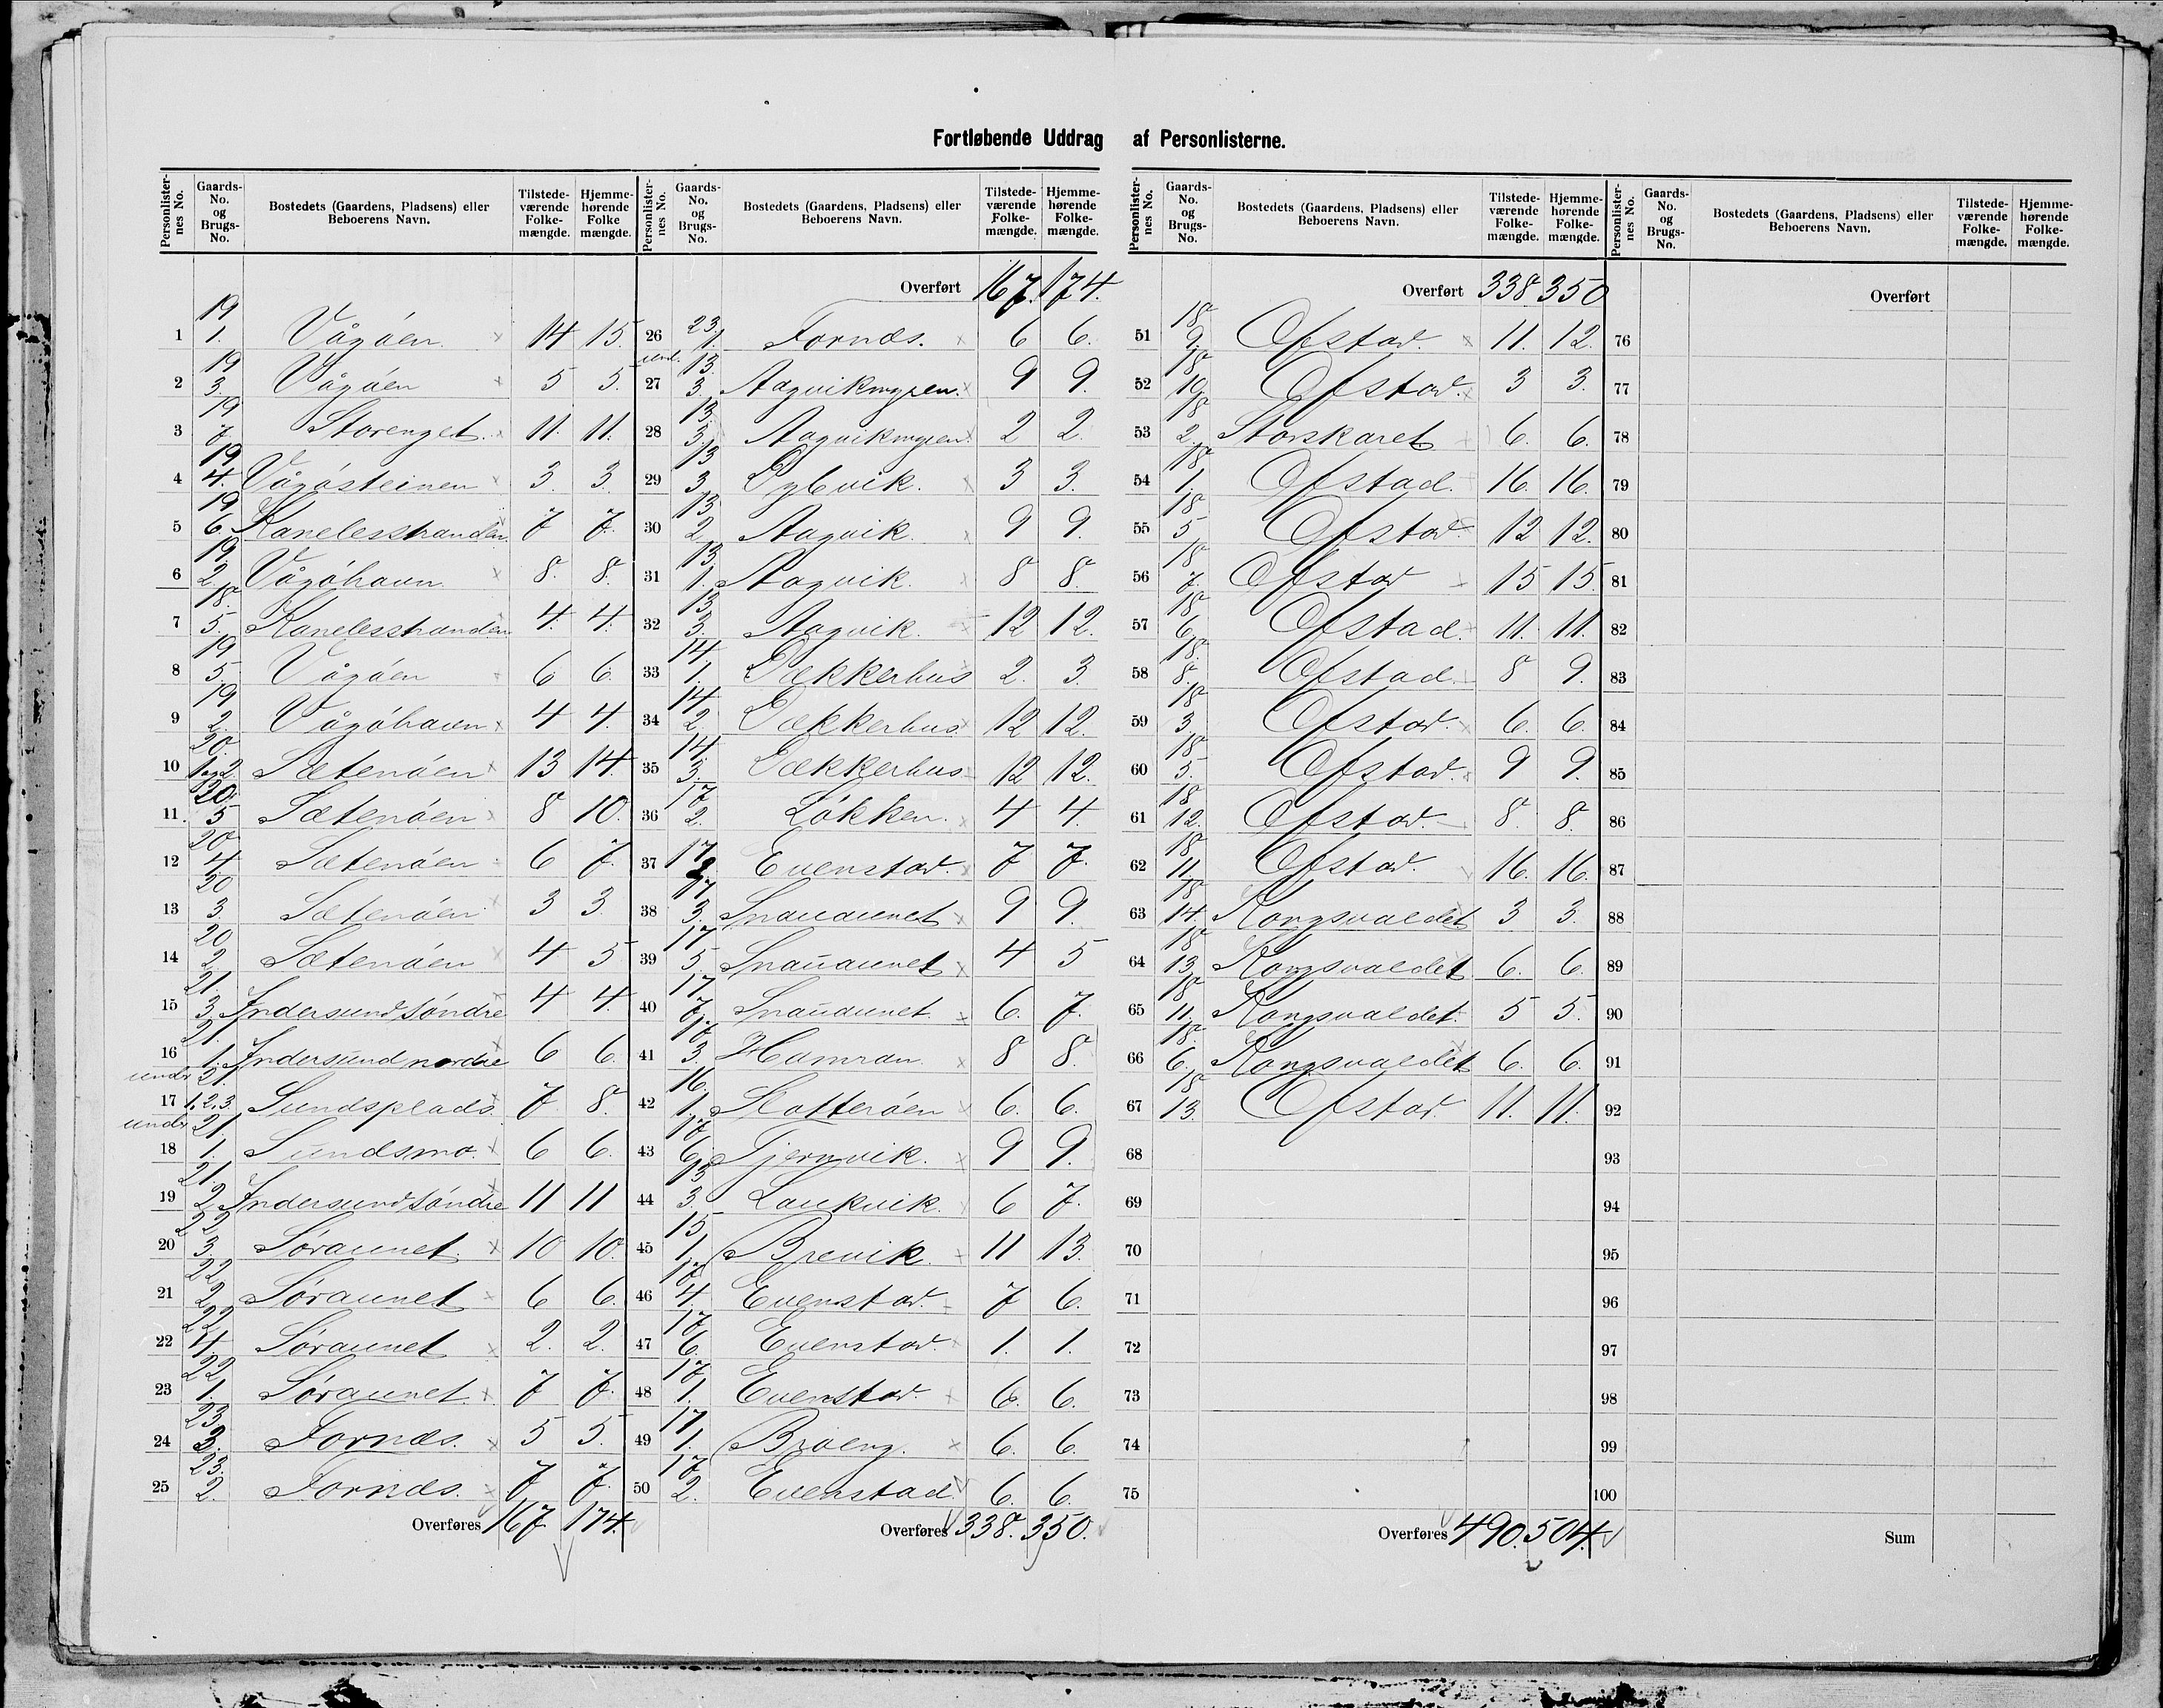 Fortløbende Uddrag af Personlisterne.
Personlisternes No. Gaards-No. og Brugs-No. Bostedets (Gaardens, Pladsens) eller Beboerens Navn. Tilstedeværende Folkemængde. Hjemmehørende Folkemængde.
1 19 1. Vågöen. 14 15.
2 19 3. Vågöen 5 5.
3 19 7. Storenget. 11. 11.
4 19 4. Vågösteinen 3. 3.
5 19 6. Kanelesstranden 7 7.
6 19 2. Vågöhavn 8. 8.
7 18. 5. Kanelesstranden 4. 4.
8 19 5. Vågöen 6 6.
9 19 2. Vågöhavn 4 4.
10 20. 1 og 2. Sætenöen 13 14.
11. 20. 5 Sætenöen 8 10.
12 20 4. Sætenöen 6 7.
13 20 3. Sætenöen 3 3.
14 20 2. Sætenöen 4 5
15 21. 3. Indersund söndre 4 4.
16 21. 1. Indersund nordre 6 6.
17 under 21. 1.2.3. Sundsplads 7 8.
18 under 21 1. Sundsmo. 6 6.
19 21. 2. Indersund söndre 11 11
20 22 3. Söraunet. 10 10.
21 22 2. Söraunet 6 6.
22 22 4. Söraunet 2. 2.
23 22 1. Söraunet. 7 7.
24 23 3. Fornæs. 5 5.
25 23. 2. Fornæs. 7 7.
Overføres 167 174.
Overført 167. 174.
26 23. 1. Fornæs. 6 6.
27 und. 13. 3. Aagvikmyren. 9 9.
28 13. 3. Aagvikmyren. 2 2.
29 13 3. Dybvik. 3 3.
30 13 2. Aagvik. 9 9.
31 13. 1. Aagvik 8 8.
32 13 3. Aagvik. 12 12.
33 14 1. Dækkerhus 2. 3.
34 14 2. Dækkerhus. 12 12.
35 14 3. Dækkerhus 12 12.
36 17 2. Lökken. 4 4.
37 17 2. Evenstad. 7 7.
38 17 3. Snauaunet 9 9.
39 17 5. Snauaunet 4 5
40 17 7. Snauaunet. 6. 7.
41 17 3. Hamran. 8 8.
42 16. 1. Slotteröen 6. 6.
43 17 6. Tjernvik. 9 9.
44 13 3. Laukvik. 6 7.
45 15 1. Brevik. 11 13.
46 17 4. Evenstad. 7 6.
47 17 6. Evenstad. 1. 1.
48 17 1. Evenstad. 6. 6.
49 17 1. Broeng. 6. 6.
50 17 2. Evenstad. 6. 6.
Overføres 338. 350.
Overført 338 350
51 18 9. Ofstad. 11. 12.
52 18 10. Ofstad. 3 3.
53 18 2. Storskaret 6. 6.
54 18 1. Ofstad. 16. 16.
55 18 5 Ofstad. 12 12.
56 18 7. Ofstad 15 15.
57 18 6. Ofstad. 11. 11.
58 18. 8. Ofstad. 8 9.
59 18 3. Ofstad. 6. 6.
60 18 5. Ofstad. 9 9.
61 18 12. Ofstad. 8. 8.
62 18 11. Ofstad. 16. 16.
63 18 14. Kongsvaldet 3 3.
64 18 13. Kongsvaldet 6. 6.
65 18 11. Kongsvaldet. 5 5.
66 18. 6. Kongsvaldet 6. 6.
67 18 13. Ofstad. 11. 11.
68
69
70
71
72
73
74
75
Overføres 490. 504.
Overført
76
77
78
79
80
81
82
83
84
85
86
87
88
89
90
91
92
93
94
95
96
97
98
99
100
Sum